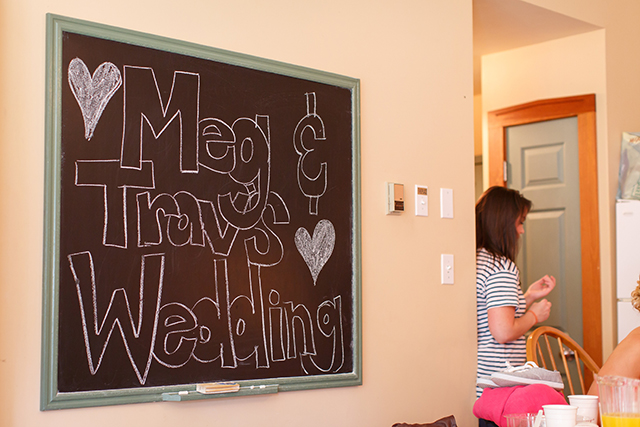 Meg &
Travs
Wedding